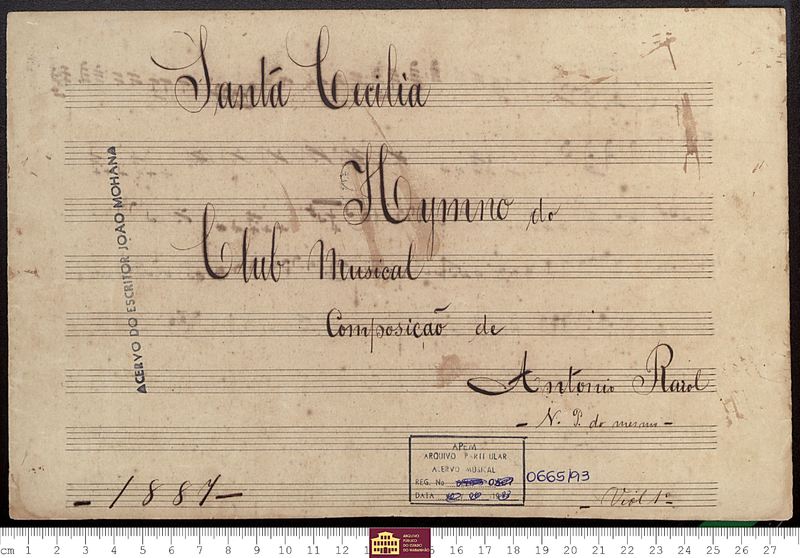 Santa Cecilia
Hymno do
Club Musical
Composição de
Antonio Rayol
- N. P. do mesmo -
- 1887 -
- Viol 1º
ACERVO DO ESCRITOR JOÃO MOHANA
APEM
ARQUIVO PARTICULAR
ACERVO MUSICAL
REG. No
0665/93
DATA
cm 1 2 3 4 5 6 7 8 9 10 11 12 13 16 17 18 19 20 21 22 23 24 25 26 27
ARQUIVO
PÚBLICO
DO ESTADO
DO MARANHÃO